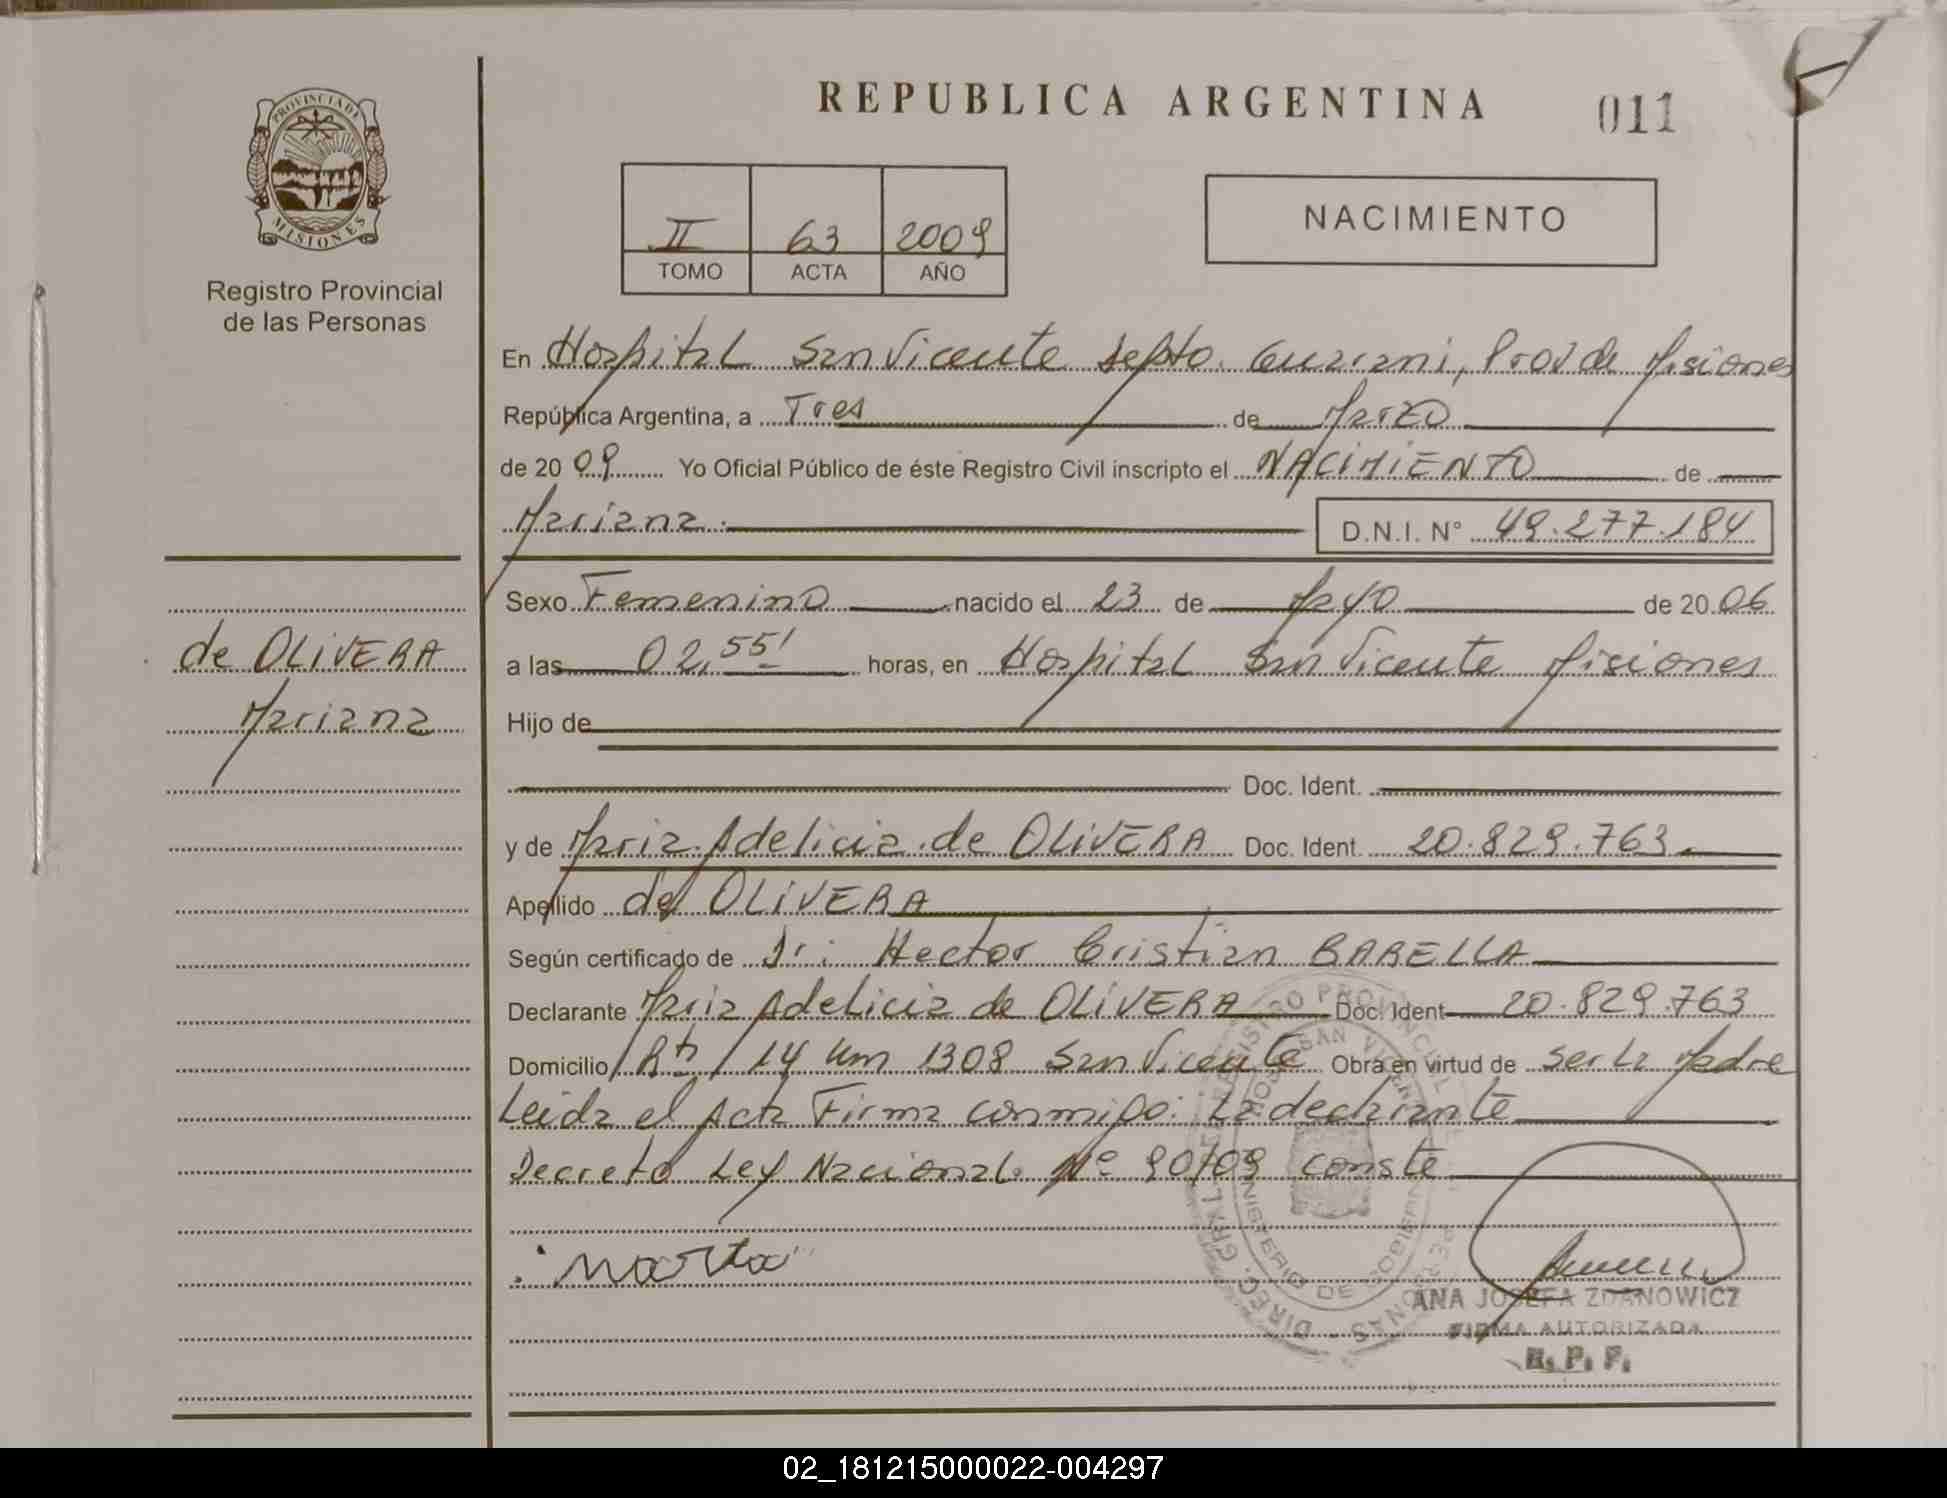 REPUBLICA ARGENTINA
011
PROVINCIA DE
MISIONES
Registro Provincial
de las Personas
II 63 2009
TOMO ACTA AÑO
NACIMIENTO
En Hospital San Vicente Depto. Guarani, Prov de Misiones
República Argentina, a Tres de Marzo
de 2009 Yo Oficial Público de éste Registro Civil inscripto el NACIMIENTO de
Mariana.
D.N.I. N° 49.277.184
Sexo Femenino nacido el 23 de Mayo de 2006
de OLIVERA
Mariana
a las 02,55' horas, en Hospital San Vicente Misiones
Hijo de
Doc. Ident.
y de Maria Adelicia de OLIVERA Doc. Ident. 20.829.763.
Apellido de OLIVERA
Según certificado de Dr: Hector Cristian BARELLA
Declarante Maria Adelicia de OLIVERA Doc. Ident 20.829.763
Domicilio Rta 14 Km 1308 San Vicente Obra en virtud de ser La Madre
Leida el Acta Firma conmigo: La declarante
Decreto Ley Nacional Nº 90/09 conste
ANA JOSEFA ZDANOWICZ
FIRMA AUTORIZADA
R. P. P.
02_181215000022-004297